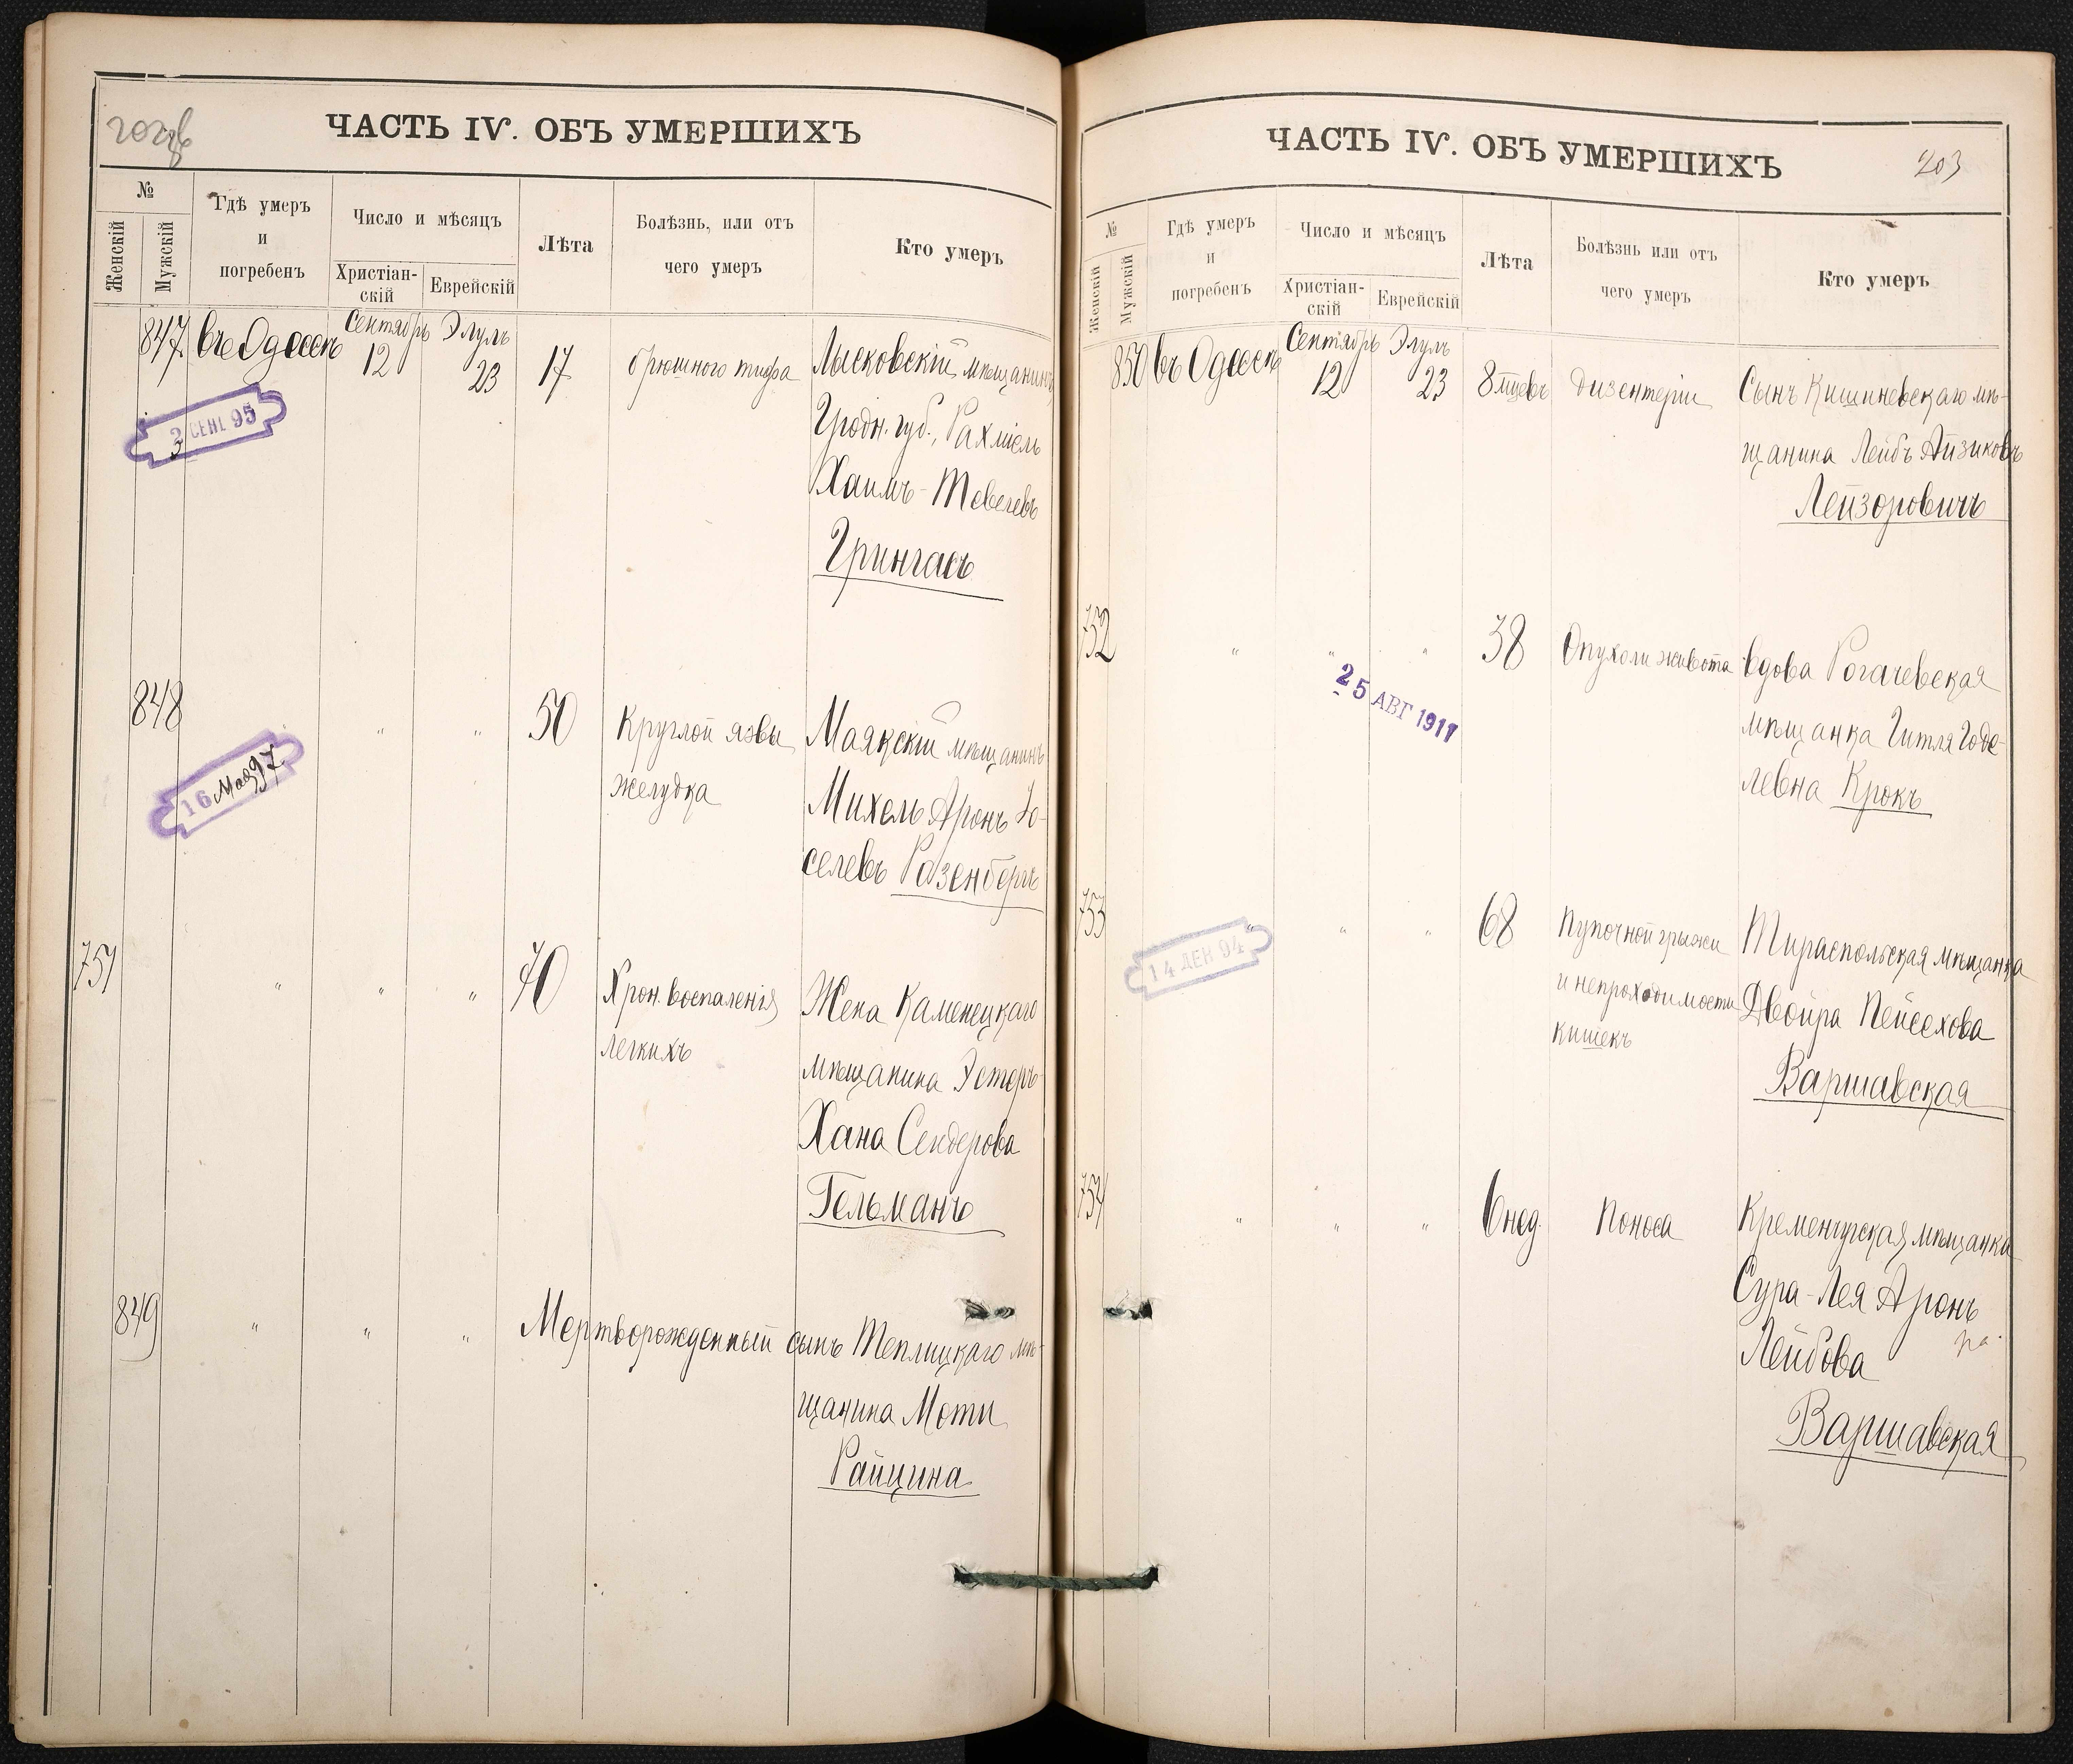 202об
ЧАСТЬ IV. ОБЪ УМЕРШИХЪ
№
Женскій
Мужскій
Гдѣ умеръ
и
погребенъ
Число и мѣсяцъ
Христіан-
скій
Еврейскій
Лѣта
Болѣзнь, или отъ
чего умеръ
Кто умеръ
847 въ Одессѣ Сентябрь 12 Элулъ 23 17 брюшного тифа Лысковскій мѣщанинъ,
Гродн. губ., Рахміель
Хаимъ-Тевелевъ
Грингасъ
3 СЕНТ 95
848 " " 50 Круглой язвы Маякскій мѣщанинъ
желудка Михель Аронъ Іо-
селевъ Разенбергъ
16 Мая 97
751 " " " 70 Хрон. воспаленія Жена Каменецкаго
легкихъ мѣщанина Эстеръ-
Хана Сендерова
Гельманъ
849 " " " Мертворожденный сынъ Теплицкаго мѣ-
щанина Моти
Райцина
203
ЧАСТЬ IV. ОБЪ УМЕРШИХЪ
№
Женскій
Мужскій
Гдѣ умеръ
и
погребенъ
Число и мѣсяцъ
Христіан-
скій
Еврейскій
Лѣта
Болѣзнь или отъ
чего умеръ
Кто умеръ
850 въ Одессѣ Сентябрь 12 Элулъ 23 8 мцевъ дизентеріи Сынъ Кишиневскаго мѣ-
щанина Лейбъ Айзиковъ
Лейзоровичъ
752 " " " 38 Опухоли живота вдова Рогачевская
мѣщанка Гитля Годе-
левна Крокъ
25 АВГ 1911
753 " " " 68 Пупочной грыжи Тираспольская мѣщанка
и непроходимости Двойра Пейсехова
кишекъ Варшавская
14 ДЕК 94
754 " " " 6 нед. Поноса Кременчугская мѣщанка
Сура-Лея Аронъ
Лейбова
Варшавская